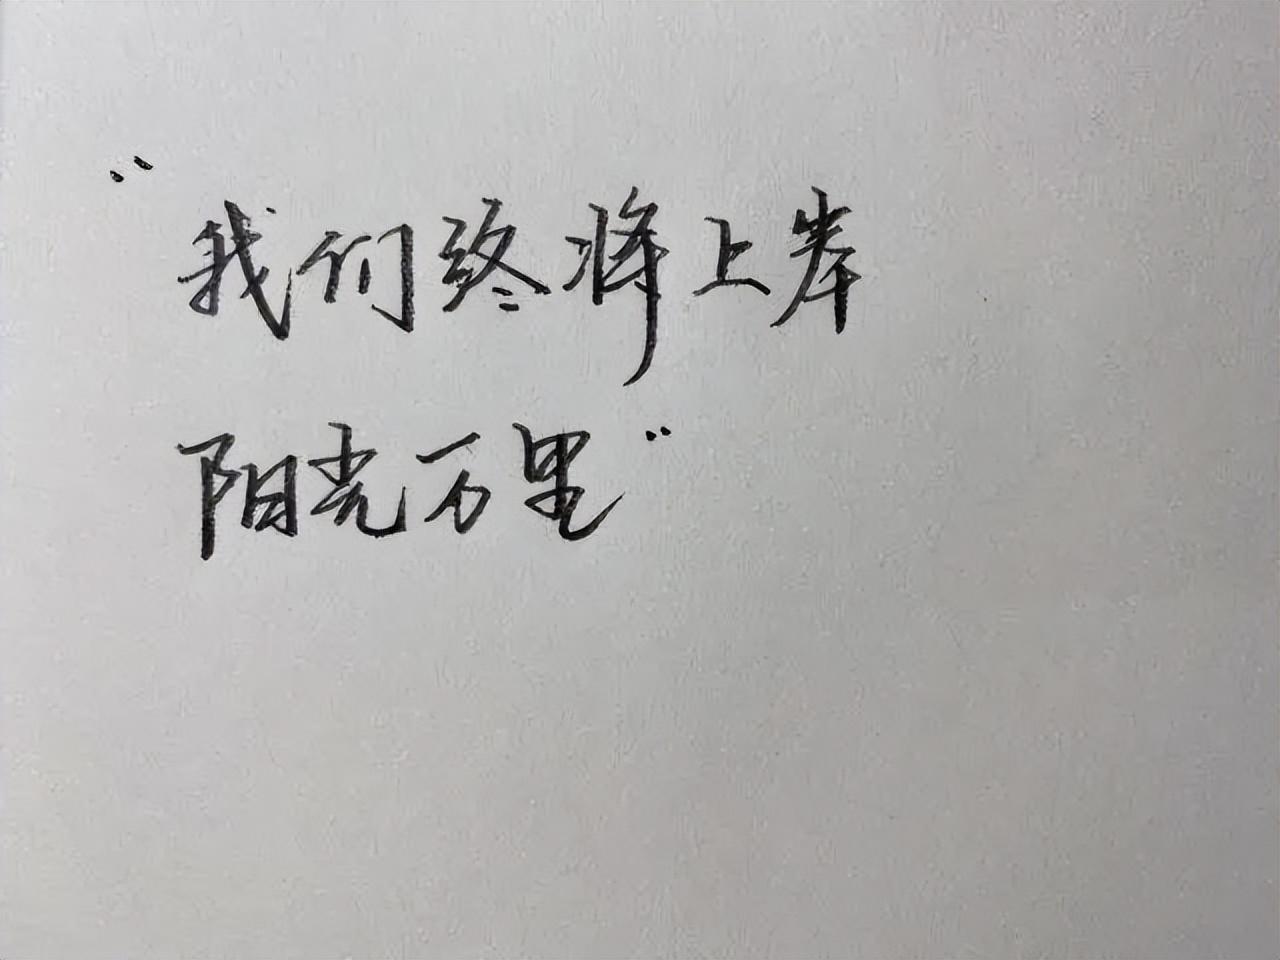 “我们终将上岸
阳光万里”